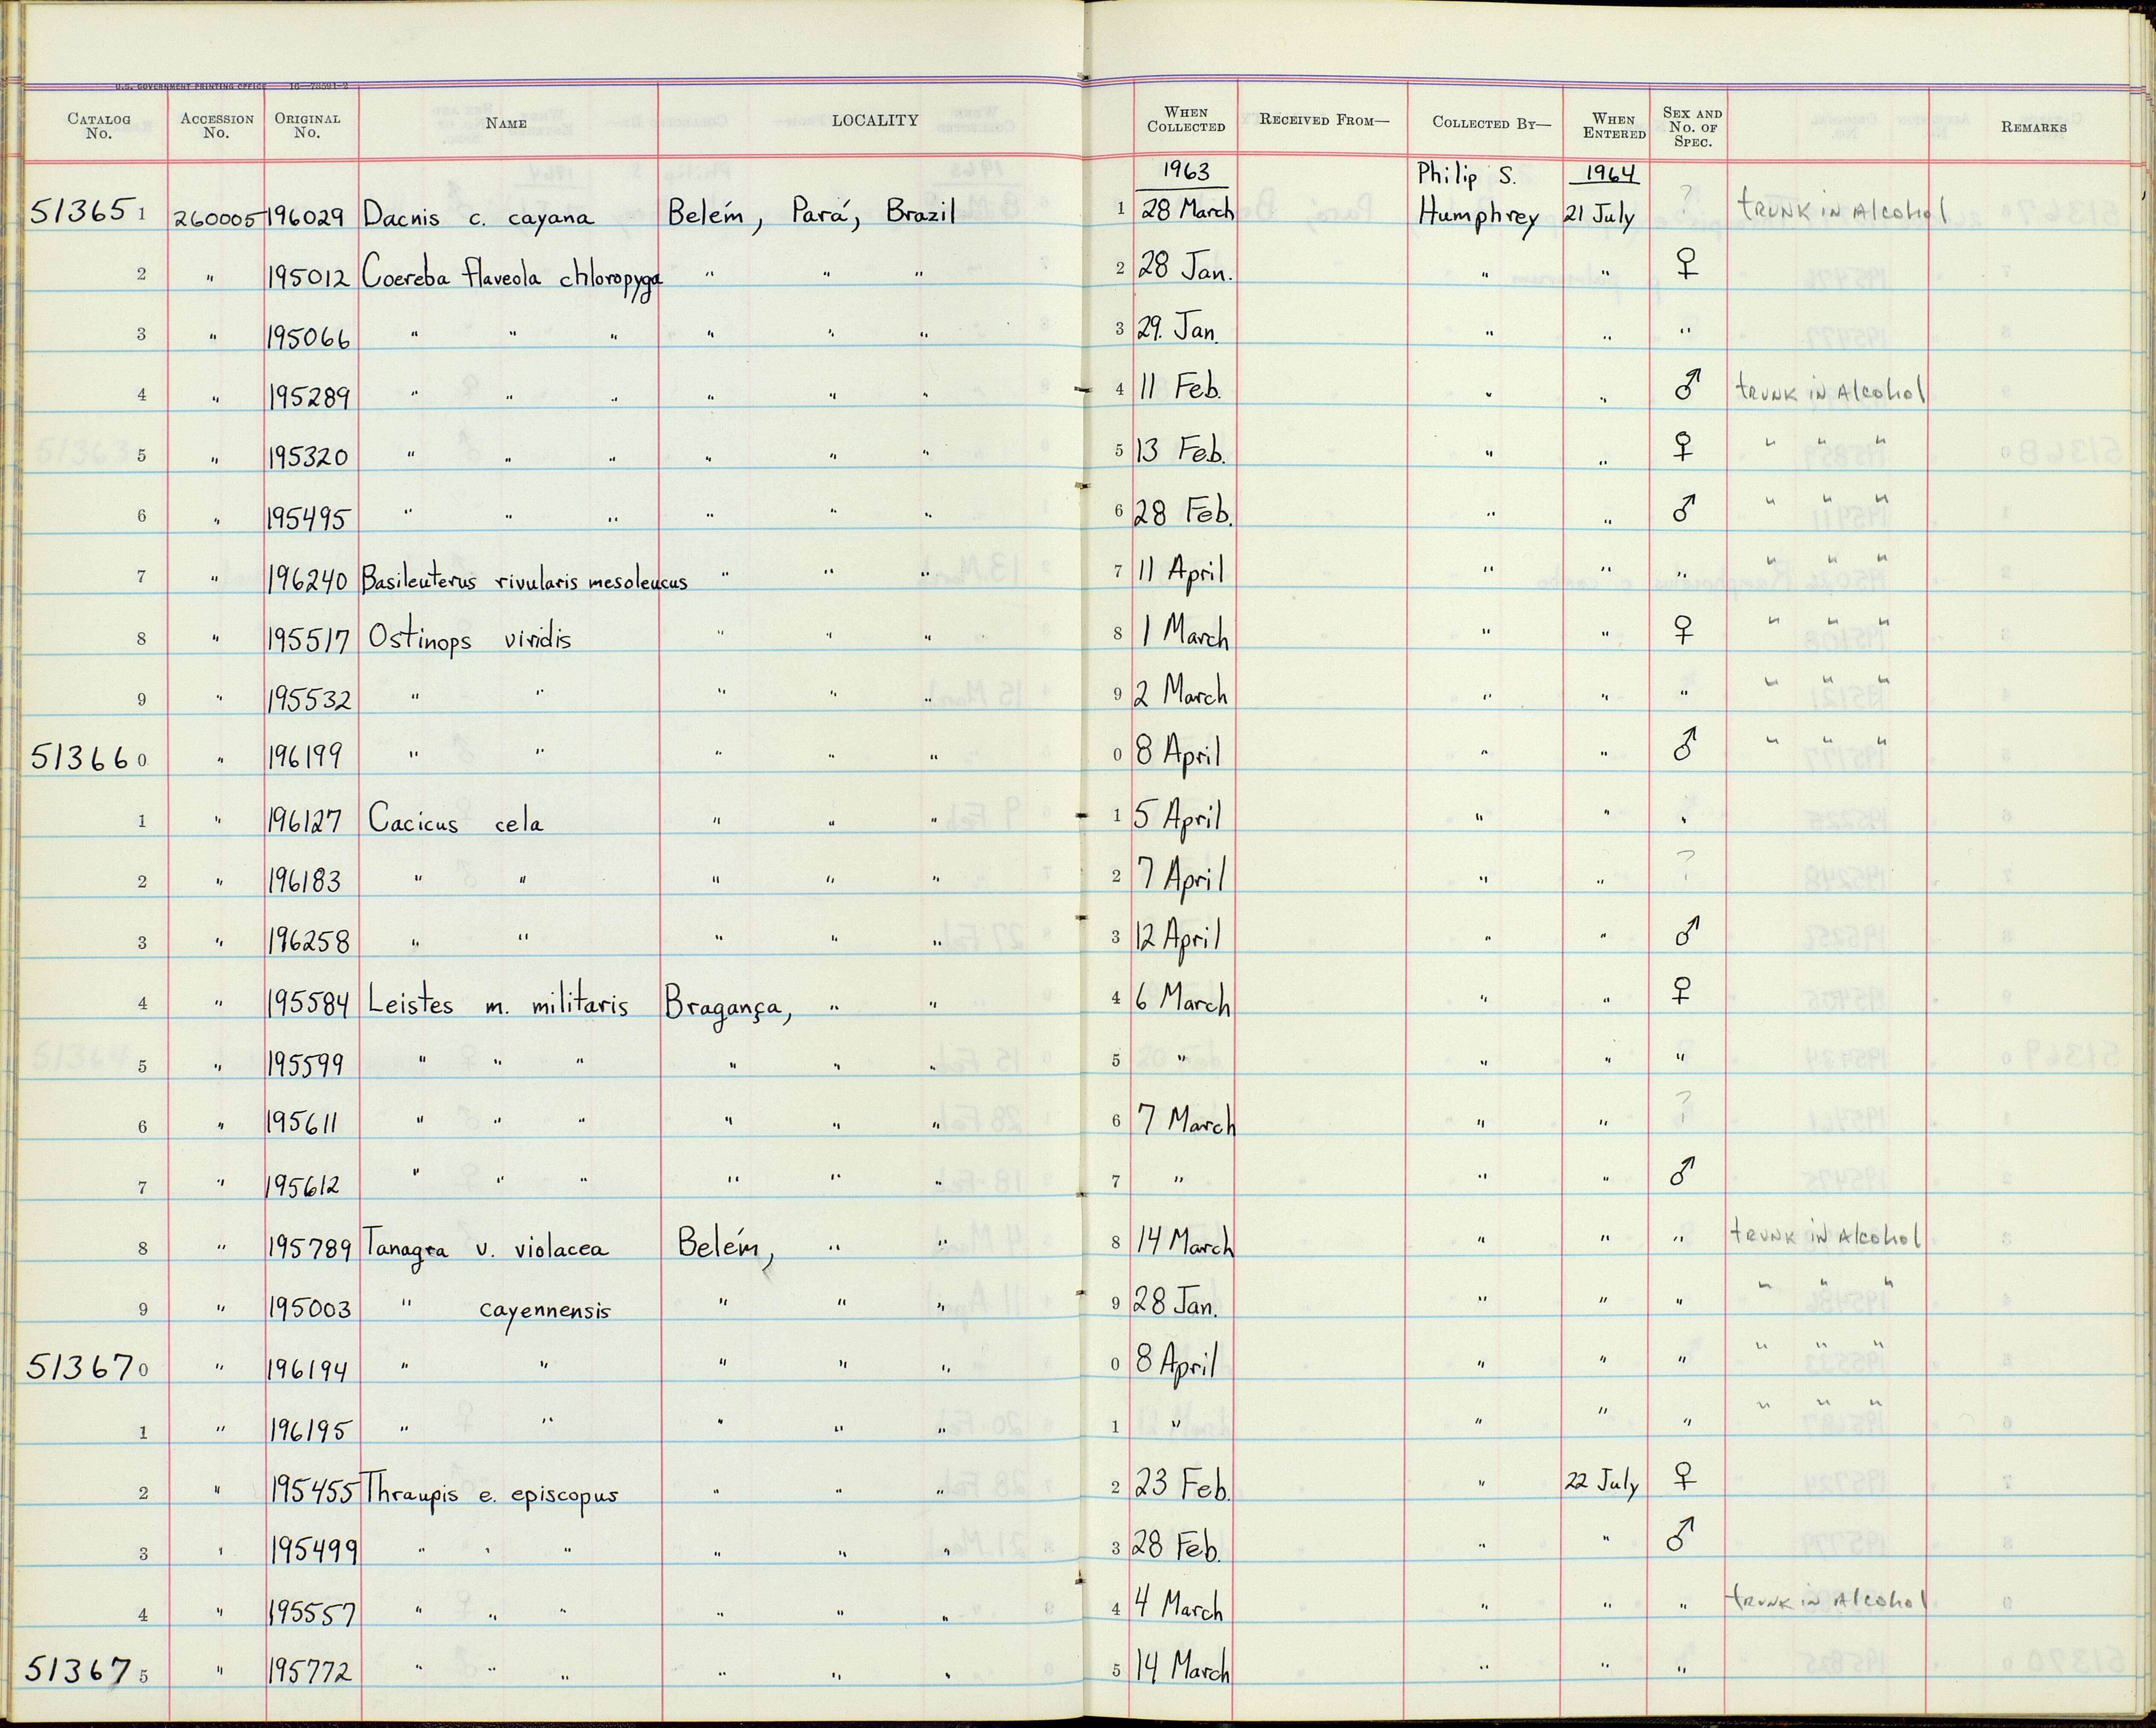 U.S. GOVERNMENT PRINTING OFFICE 16—73591-2
CATALOG No. ACCESSION No. ORIGINAL No. NAME LOCALITY WHEN COLLECTED RECEIVED FROM— COLLECTED BY— WHEN ENTERED SEX AND No. OF SPEC. REMARKS
1963 Philip S. 1964
51365 1 260005 196029 Dacnis c. cayana Belém, Pará, Brazil 1 28 March Humphrey 21 July ? trunk in Alcohol
2 " 195012 Coereba flaveola chloropyga " " " 2 28 Jan. " " ♀
3 " 195066 " " " " " " 3 29. Jan. " " "
4 " 195289 " " " " " " 4 11 Feb. " " ♂ trunk in Alcohol
5 " 195320 " " " " " " 5 13 Feb. " " ♀ " " "
6 " 195495 " " " " " " 6 28 Feb. " " ♂ " " "
7 " 196240 Basileuterus rivularis mesoleucus " " " 7 11 April " " " " " "
8 " 195517 Ostinops viridis " " " 8 1 March " " ♀ " " "
9 " 195532 " " " " " 9 2 March " " " " " "
51366 0 " 196199 " " " " " 0 8 April " " ♂ " " "
1 " 196127 Cacicus cela " " " 1 5 April " " "
2 " 196183 " " " " " 2 7 April " " ?
3 " 196258 " " " " " 3 12 April " " ♂
4 " 195584 Leistes m. militaris Bragança, " " 4 6 March " " ♀
5 " 195599 " " " " " " 5 " " " "
6 " 195611 " " " " " " 6 7 March " " ?
7 " 195612 " " " " " " 7 " " " ♂
8 " 195789 Tanagra v. violacea Belém, " " 8 14 March " " " trunk in Alcohol
9 " 195003 " cayennensis " " " 9 28 Jan. " " " " " "
51367 0 " 196194 " " " " " 0 8 April " " " " " "
1 " 196195 " " " " " 1 " " " " " " "
2 " 195455 Thraupis e. episcopus " " " 2 23 Feb. " 22 July ♀
3 " 195499 " " " " " " 3 28 Feb. " " ♂
4 " 195557 " " " " " " 4 4 March " " " trunk in Alcohol
51367 5 " 195772 " " " " " " 5 14 March " " "